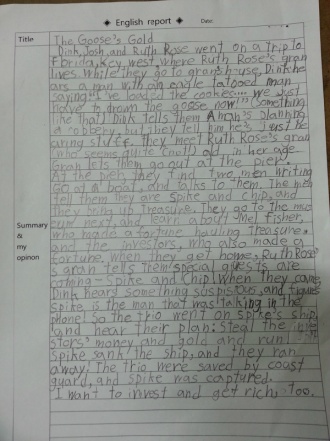 English report Date:
Title
The Goose's Gold
Dink, Josh, and Ruth Rose went on a trip to
Florida, Key west, where Ruth Rose's gran
lives. While they go to gran's house, Dink he
ars a man with an eagle tatooed man
saying "I've loaded the cookes... we just
have to drown the goose now!" (Something
like that) Dink tells them A man's planning
a robbery, but they tell him he's just be
aring stuff. they meet Ruth Rose's gran
(who seems quite old) in her age.
Gran lets them go out at the pier.
At the pier, they find two men writing
Gold at a boat, and talks to them. The men
tell them they are Spike and chip, and
they bring up treasure. They go to the mus
eum next, and learn about Mel Fisher,
who made a fortune hauling treasure.
and the investors, who also made a
fortune. When they get home, Ruth Rose'
s gran tells them special guests are
coming - Spike and Chip! When they came,
Dink hears something suspicious, and figures
spike is the man that was talking in the
phone! So the trio went on spike's ship,
and hear their plan: Steal the inve
stors' money and gold and run!
Spike sank the ship, and they ran
away! The trio were saved by coast
guard, and Spike was captured.
I want to invest and get rich, too.
Summary
&
my
opinon